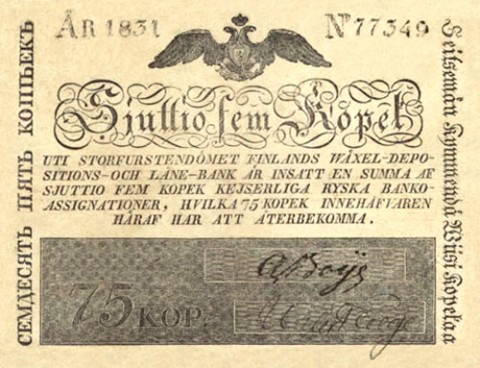 ÅR 1831
No 77349
Sjuttio fem Kopek
UTI STORFURSTENDÖMET FINLANDS WÄXEL-DEPO-
SITIONS-OCH LÅNE-BANK ÄR INSATT EN SUMMA AF
SJUTTIO FEM KOPEK KEJSERLIGA RYSKA BANKO-
ASSIGNATIONER, HVILKA 75 KOPEK INNEHAFVAREN
HÄRAF HAR ATT ÅTERBEKOMMA.
75 KOP.
СЕМДЕСЯТЬ ПЯТЬ КОПѢЕКЪ
Seitsemän Kymmendä Wiisi Kopekaa